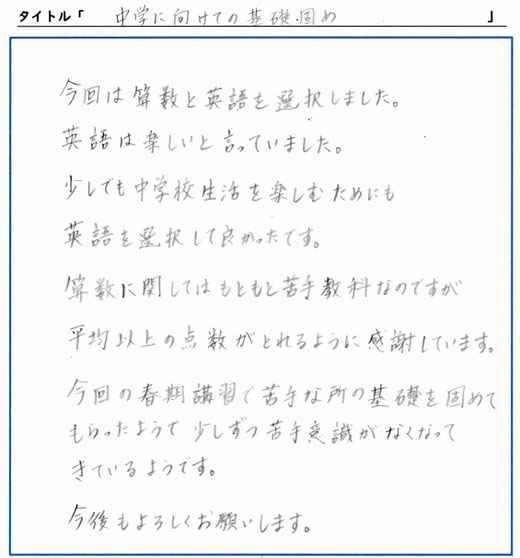 タイトル「 中学に向けての基礎固め 」
今回は算数と英語を選択しました。
英語は楽しいと言っていました。
少しでも中学校生活を楽しむためにも
英語を選択して良かったです。
算数に関してはもともと苦手教科なのですが
平均以上の点数がとれるように感謝しています。
今回の春期講習で苦手な所の基礎を固めて
もらったようで少しずつ苦手意識がなくなって
きているようです。
今後もよろしくお願いします。